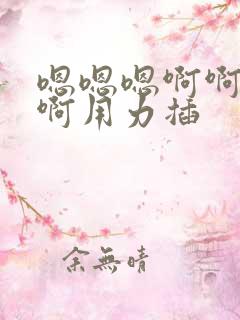 嗯嗯嗯啊啊
啊用力插
余無晴